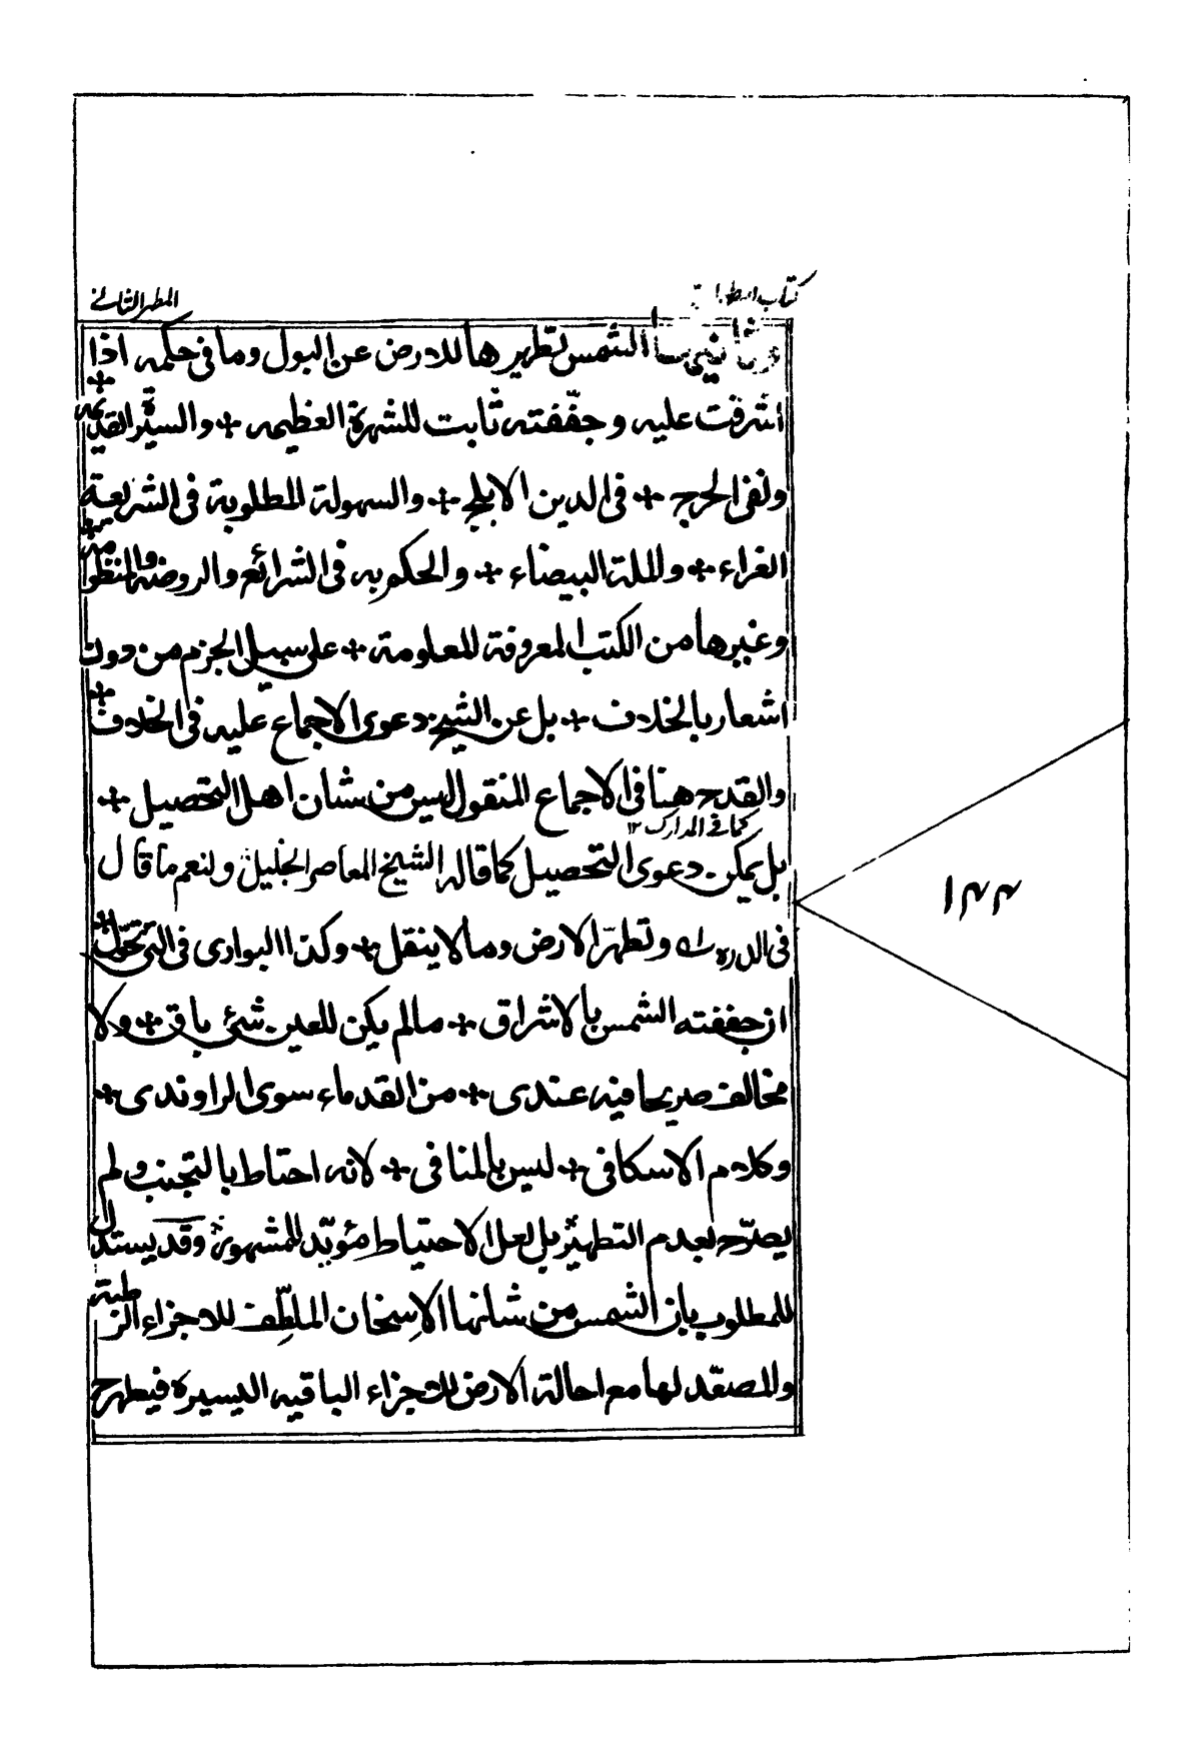 كتاب الطهارة
المطهر الثاني
وثانيها الشمس تطهيرها للارض عن البول وما في حكمه اذا
اشرقت عليه وجفّفته ثابت للشهرة العظيمه + والسيرة القديمه +
ونفي الحرج + في الدين الابلج + والسهولة المطلوبة في الشريعة
الغراء + والملة البيضاء + والحكم به في الشرائع والروضه والمنظومة +
وغيرها من الكتب المعروفة المعلومة + على سبيل الجزم من دون
اشعار بالخلاف + بل عن الشيخ دعوى الاجماع عليه في الخلاف +
والقدح هنا في الاجماع المنقول ليس من شان اهل التحصيل +
كما في المدارك ١٢
بل يمكن دعوى التحصيل كما قاله الشيخ المعاصر الجليل ولنعم ما قال
في الدره وتطهّر الارض وما لا ينقل + وكذا البوادى في التى تحوّل +
ان جففته الشمس بالاشراق + مالم يكن للعين شئ باق + ولا
مخالف صريحا فيه عندى + من القدماء سوى الراوندى +
وكلام الاسكافي + ليس بالمنافي + لانه احتاط بالتجنب ولم
يصرّح بعدم التطهير بل لعل الاحتياط مئويّد للمشهور وقد يستدل
للمطلوب بان الشمس من شانها الاسخان الملطّف للاجزاء الرطبة
والمصعّد لها مع احالة الارض للاجزاء الباقيه اليسيرة فيطهرح
١٤٤